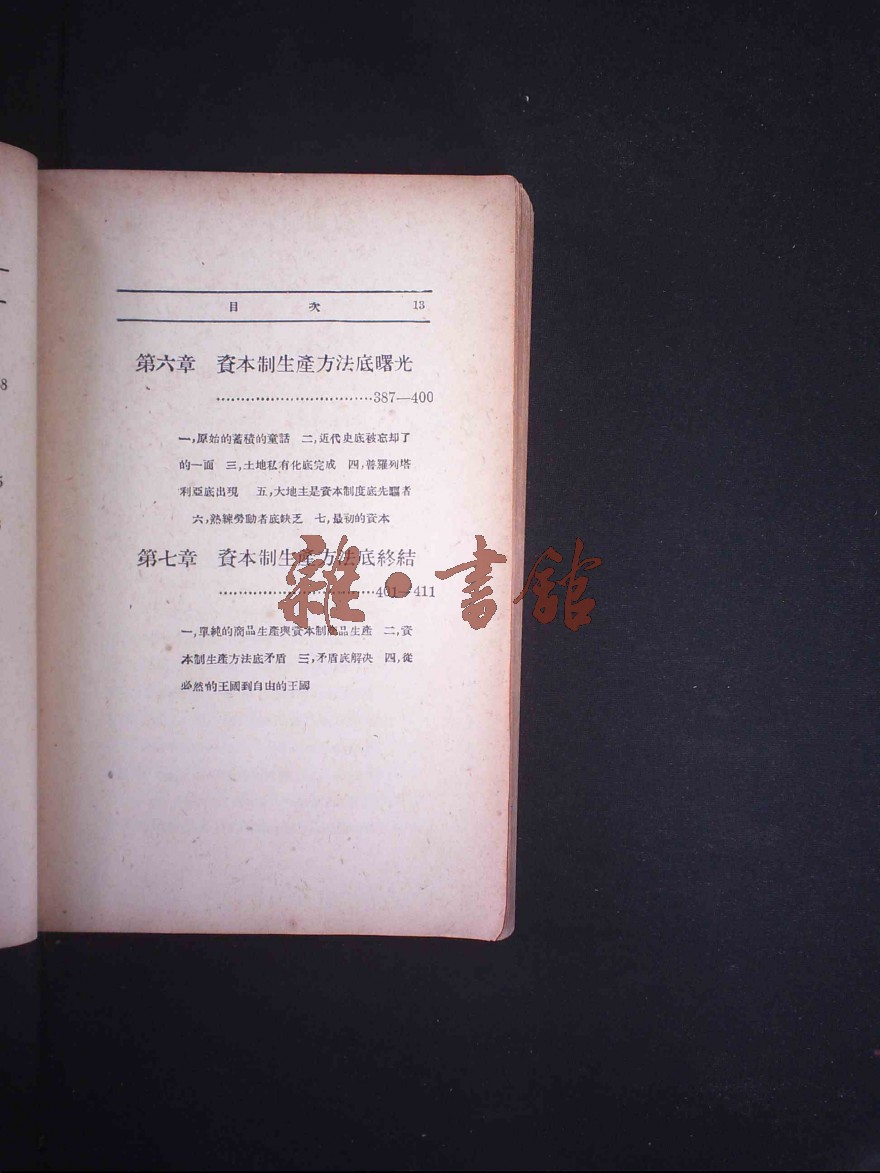 目 次 13
第六章 資本制生產方法底曙光
……………………………387—400
一,原始的蓄積的童話 二,近代史底被忘却了
的一面 三,土地私有化底完成 四,普羅列塔
利亞底出現 五,大地主是資本制度底先驅者
六,熟練勞動者底缺乏 七,最初的資本
第七章 資本制生產方法底終結
……………………………401—411
一,單純的商品生產與資本制商品生產 二,資
本制生產方法底矛盾 三,矛盾底解決 四,從
必然的王國到自由的王國
雜·書館